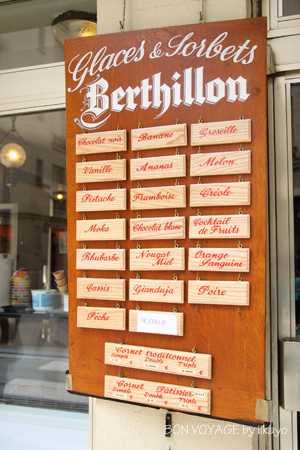 Glaces & Sorbets
Berthillon
Chocolat noir
Banane
Groseille
Vanille
Ananas
Melon
Pistache
Framboise
Créole
Moka
Chocolat blanc
Cocktail
de Fruits
Rhubarbe
Nougat
Miel
Orange
Sanguine
Cassis
Gianduja
Poire
Pêche
Cornet traditionnel
Simple Double Triple
€ € €
Cornet Pâtissier
Simple Double Triple
€ € €
BON VOYAGE by iikayo